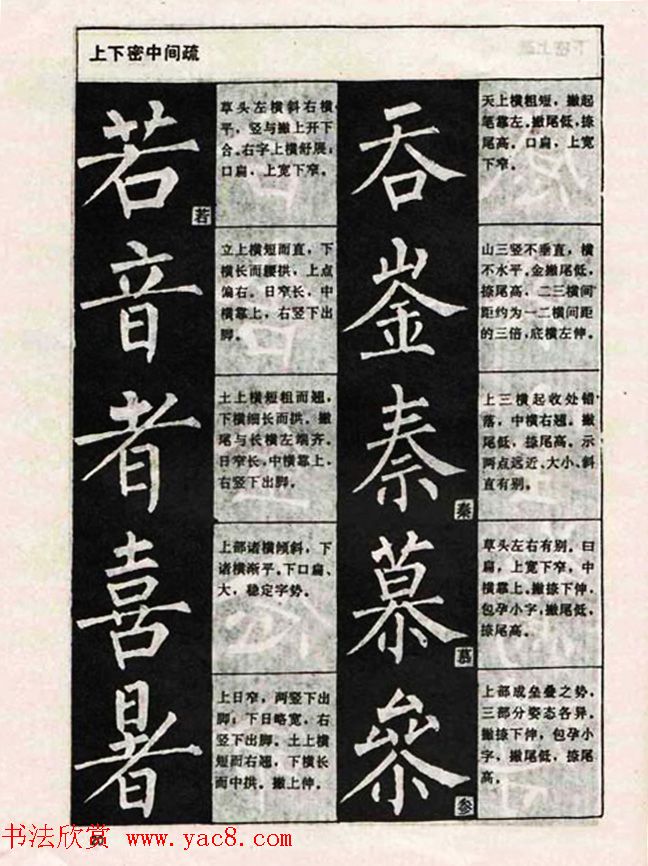 上下密中间疏
若
若
草头左横斜右横
平，竖与撇上开下
合。右字上横舒展，
口扁，上宽下窄。
音
立上横短而直，下
横长而腰拱，上点
偏右。日窄长，中
横靠上，右竖下出
脚。
者
土上横短粗而翘，
下横细长而拱。撇
尾与长横左端齐。
日窄长，中横靠上，
右竖下出脚。
喜
上部诸横倾斜，下
诸横渐平。下口扁、
大，稳定字势。
暑
上日窄，两竖下出
脚；下日略宽，右
竖下出脚。土上横
短而右翘，下横长
而中拱。撇上伸。
吞
天上横粗短，撇起
笔靠左。撇尾低，捺
尾高。口扁，上宽
下窄。
崟
山三竖不垂直，横
不水平。金撇尾低，
捺尾高，二三横间
距约为一二横间距
的三倍，底横左伸。
秦
秦
上三横起收处错
落，中横右翘。撇
尾低，捺尾高。示
两点远近、大小、斜
直有别。
慕
慕
草头左右有别。曰
扁，上宽下窄，中
横靠上。撇捺下伸，
包孕小字，撇尾低，
捺尾高。
參
参
上部成垒叠之势，
三部分姿态各异。
撇捺下伸，包孕小
字，撇尾低，捺尾
高。
书法欣赏 www.yac8.com